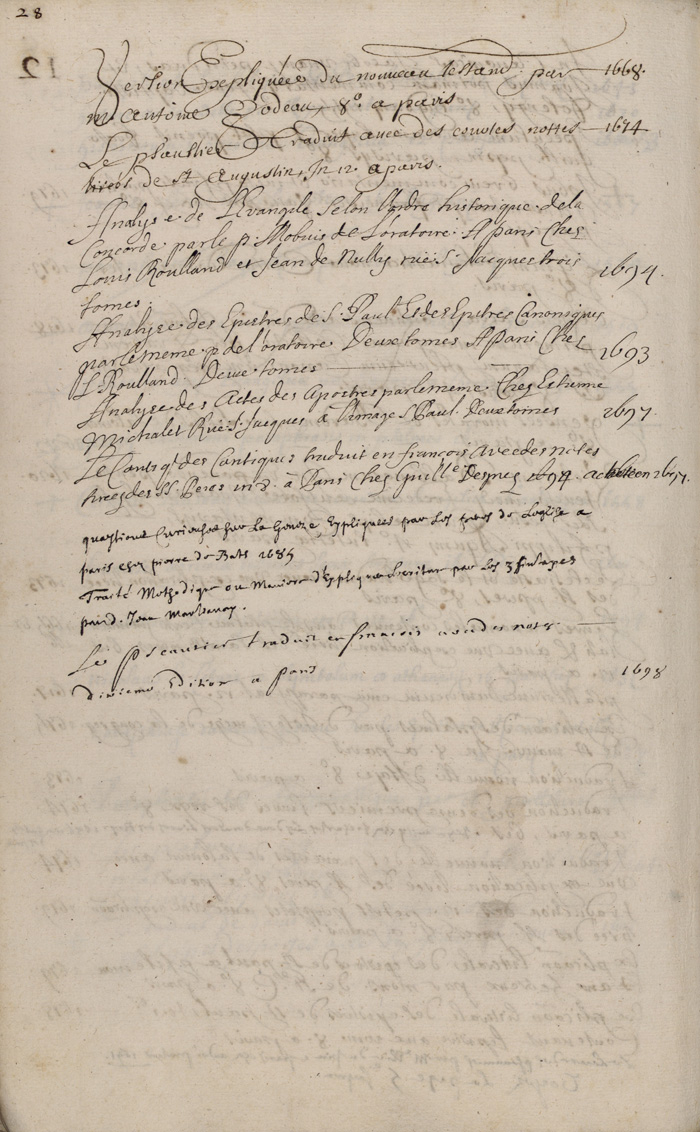 28
Version Expliquéee du nouveau testam. par 1668.
Mr Antoine Godeau, 8º. a paris
Le psaultier traduit avec des courtes nottes 1674
tireés de St Augustin, In 12. a paris.
Analyse de L'Evangile Selon l'ordre historique de la
Concorde par le p. Mobuis de Loratoire. A Paris Chez
Louis Roulland et Jean de Nully ruë S. Jacques trois 1694.
tomes.
Analyse des Epistres de S. Paul Et des Epitres Canoniques
par le meme p. de l'oratoire Deux tomes A Paris Chez 1693
L. Roulland. Deux tomes
Analyse des Actes des Apostres par le meme. Chez Estienne
Michalet Ruë S. Jacques à l'image S. Paul. Deux tomes 1697.
Le Cantiq. des Cantiques traduit en françois avec des notes
tireez des SS. Peres in 8. à Paris Chez Guill. Desprez 1694. en 1697.
questions Curieuses sur la Geneze, Expliquées par Les peres de Leglise a
paris chez pierre de Bats 1685
Traité Methodique ou Maniere d'Expliquer lecriture par les 3
par d. Jean Martianay.
Le pseautier traduit en francois avec des notes
Edition a paris 1698